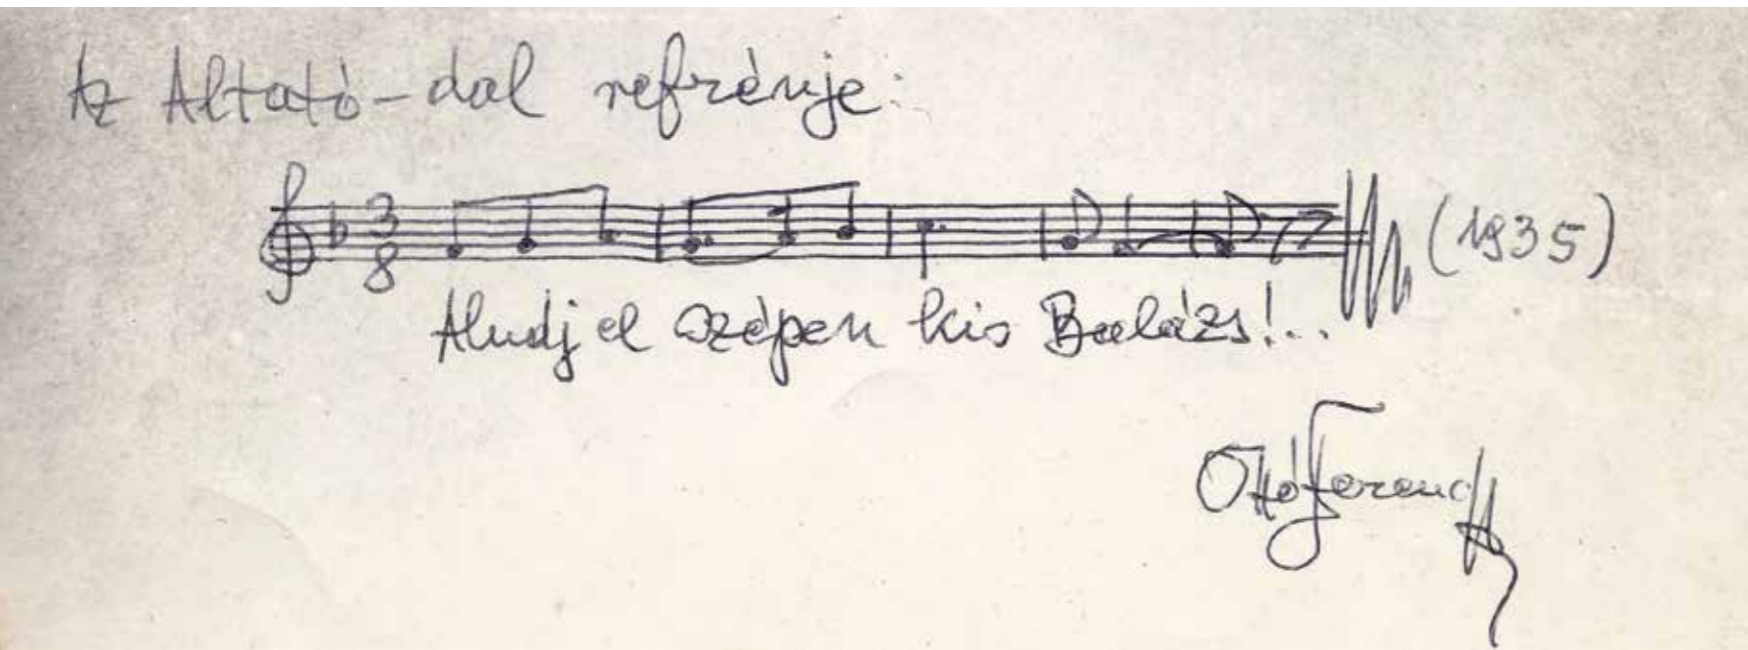 Az Altató-dal refrénje:
3
8
(1935)
Aludj el szépen kis Balázs!..
Ottó Ferenc